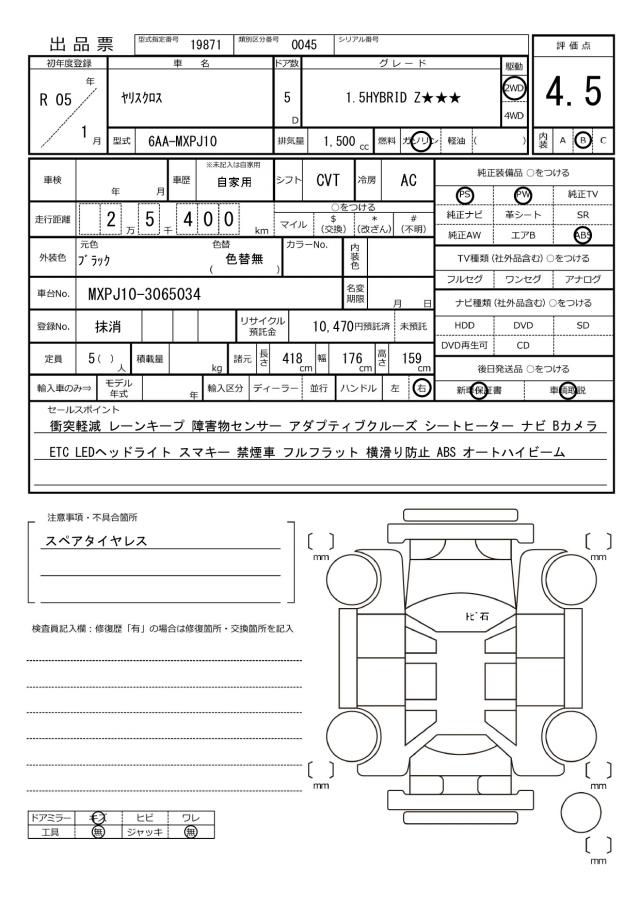 出品票
型式指定番号 19871 類別区分番号 0045 シリアル番号
評価点
4.5
内装 A B C
初年度登録 車名 ドア数 グレード 駆動
R 05 年 1 月
ヤリスクロス
5 D
1.5HYBRID Z★★★
2WD
4WD
型式 6AA-MXPJ10 排気量 1,500 cc 燃料 ガソリン 軽油 ( )
車検 年 月 車歴 ※未記入は自家用 自家用 シフト CVT 冷房 AC
純正装備品 ○をつける
PS PW 純正TV
純正ナビ 革シート SR
純正AW エアB ABS
走行距離 2 万 5 千 4 0 0 km
○をつける
マイル $ (交換) * (改ざん) # (不明)
外装色 元色 ブラック 色替 ( 色替無 ) カラーNo. 内装色
TV種類(社外品含む) ○をつける
フルセグ ワンセグ アナログ
車台No. MXPJ10-3065034 名変期限 月 日
ナビ種類(社外品含む) ○をつける
HDD DVD SD
DVD再生可 CD
登録No. 抹消 リサイクル預託金 10,470円預託済 未預託
定員 5 ( ) 人 積載量 kg 諸元 長さ 418 cm 幅 176 cm 高さ 159 cm
後日発送品 ○をつける
新車保証書 車輌取説
輸入車のみ⇒ モデル年式 年 輸入区分 ディーラー 並行 ハンドル 左 右
セールスポイント
衝突軽減 レーンキープ 障害物センサー アダプティブクルーズ シートヒーター ナビ Bカメラ
ETC LEDヘッドライト スマキー 禁煙車 フルフラット 横滑り防止 ABS オートハイビーム
注意事項・不具合箇所
スペアタイヤレス
検査員記入欄：修復歴「有」の場合は修復箇所・交換箇所を記入
mm
mm
トビ石
mm
mm
mm
ドアミラー キズ ヒビ ワレ
工具 無 ジャッキ 無